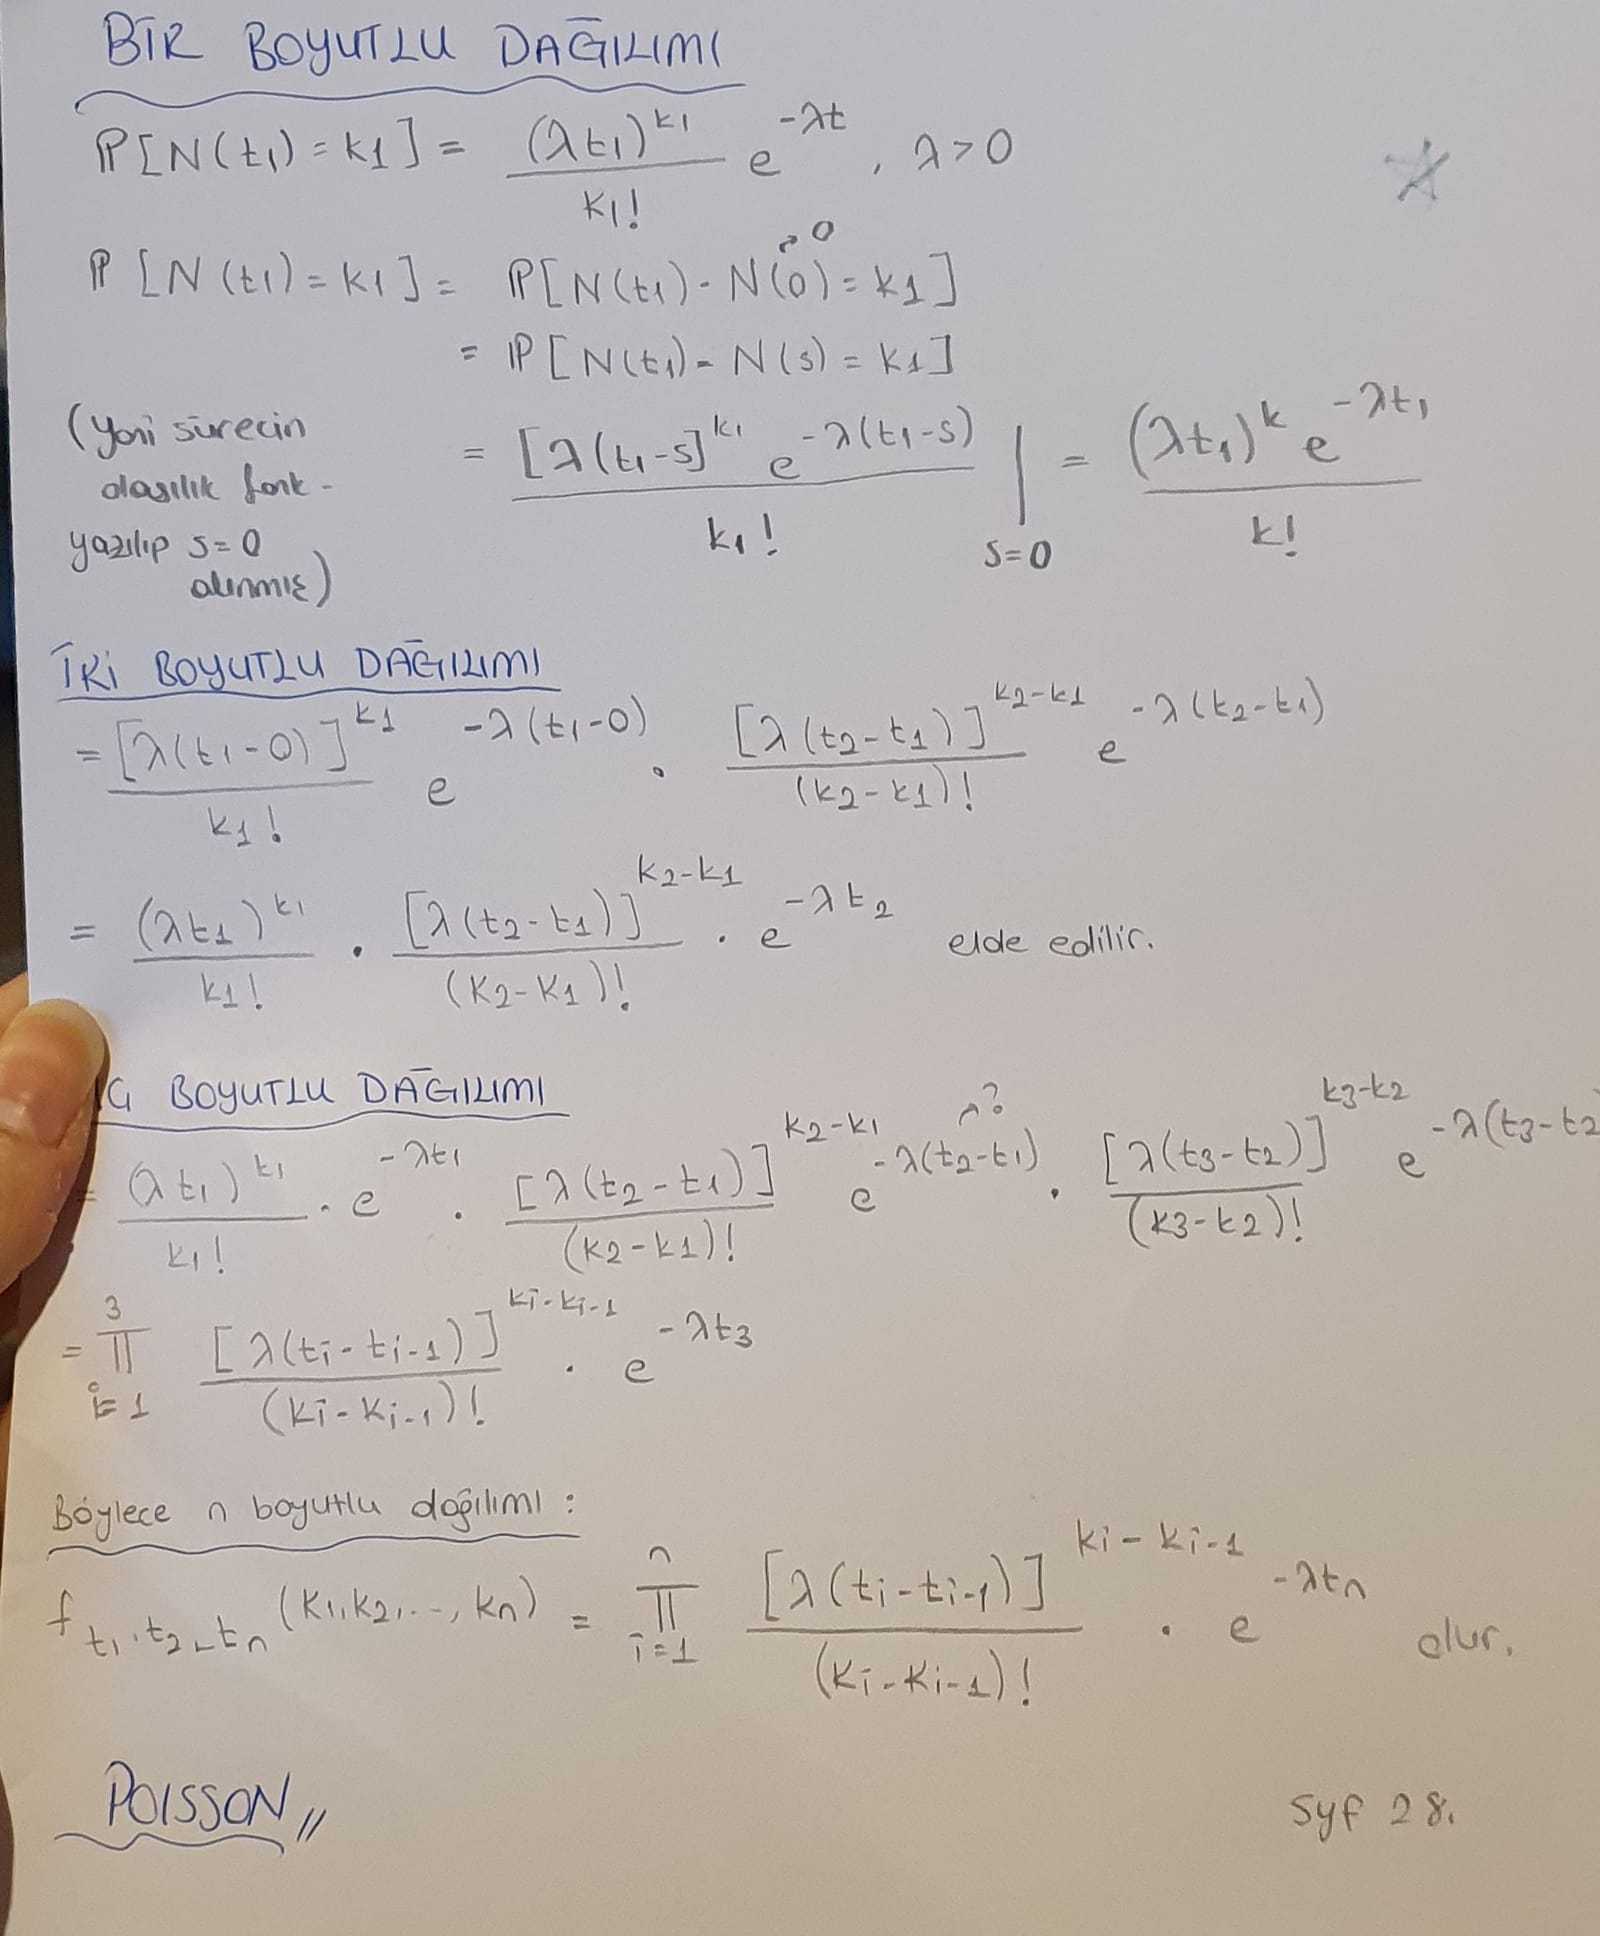 BİR BOYUTLU DAĞILIMI
ℙ[N(t₁) = k1] = (λt₁)^k₁ / k₁! e^-λt , λ>0
ℙ[N(t₁) = k₁] = ℙ[N(t₁) - N(0) = k1] → 0
= ℙ[N(t₁) - N(s) = k1]
(yani sürecin olasılık fonk. yazılıp s=0 alınmış)
= [λ(t₁-s]^k₁ e^-λ(t₁-s) / k₁! | s=0 = (λt₁)^k e^-λt₁ / k!
İKİ BOYUTLU DAĞILIMI
= [λ(t₁-0)]^k1 / k1! e^-λ(t₁-0) . [λ(t2-t1)]^k2-k1 / (k2-k1)! e^-λ(t2-t1)
= (λt1)^k₁ / k1! . [λ(t2-t1)]^k2-k1 / (k2-k1)! . e^-λt2 elde edilir.
BOYUTLU DAĞILIMI
= (λt₁)^k₁ / k₁! . e^-λt₁ . [λ(t2-t1)]^k2-k₁ / (k2-k1)! e^-λ(t2-t₁) → ? . [λ(t3-t2)]^k3-k2 / (k3-k2)! e^-λ(t3-t2
= 3 ∏ i=1 [λ(ti-ti-1)]^ki-ki-1 / (ki-ki-1)! . e^-λt3
Böylece n boyutlu dağılımı :
f t₁,t2...tn (k1,k2,..., kn) = n ∏ i=1 [λ(ti-ti-1)]^ki-ki-1 / (ki-ki-1)! . e^-λtn olur.
POISSON //
syf 28.